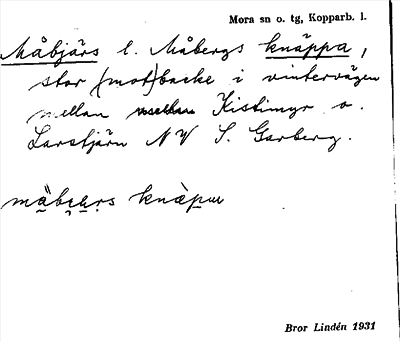 Mora sn o. tg, Kopparb. l.
Måbjärs l. Måbergs knäppa,
stor (mot)backe i vintervägen
mellan Kistimyr o.
Larstjärn NV S. Garberg.
Bror Lindén 1931